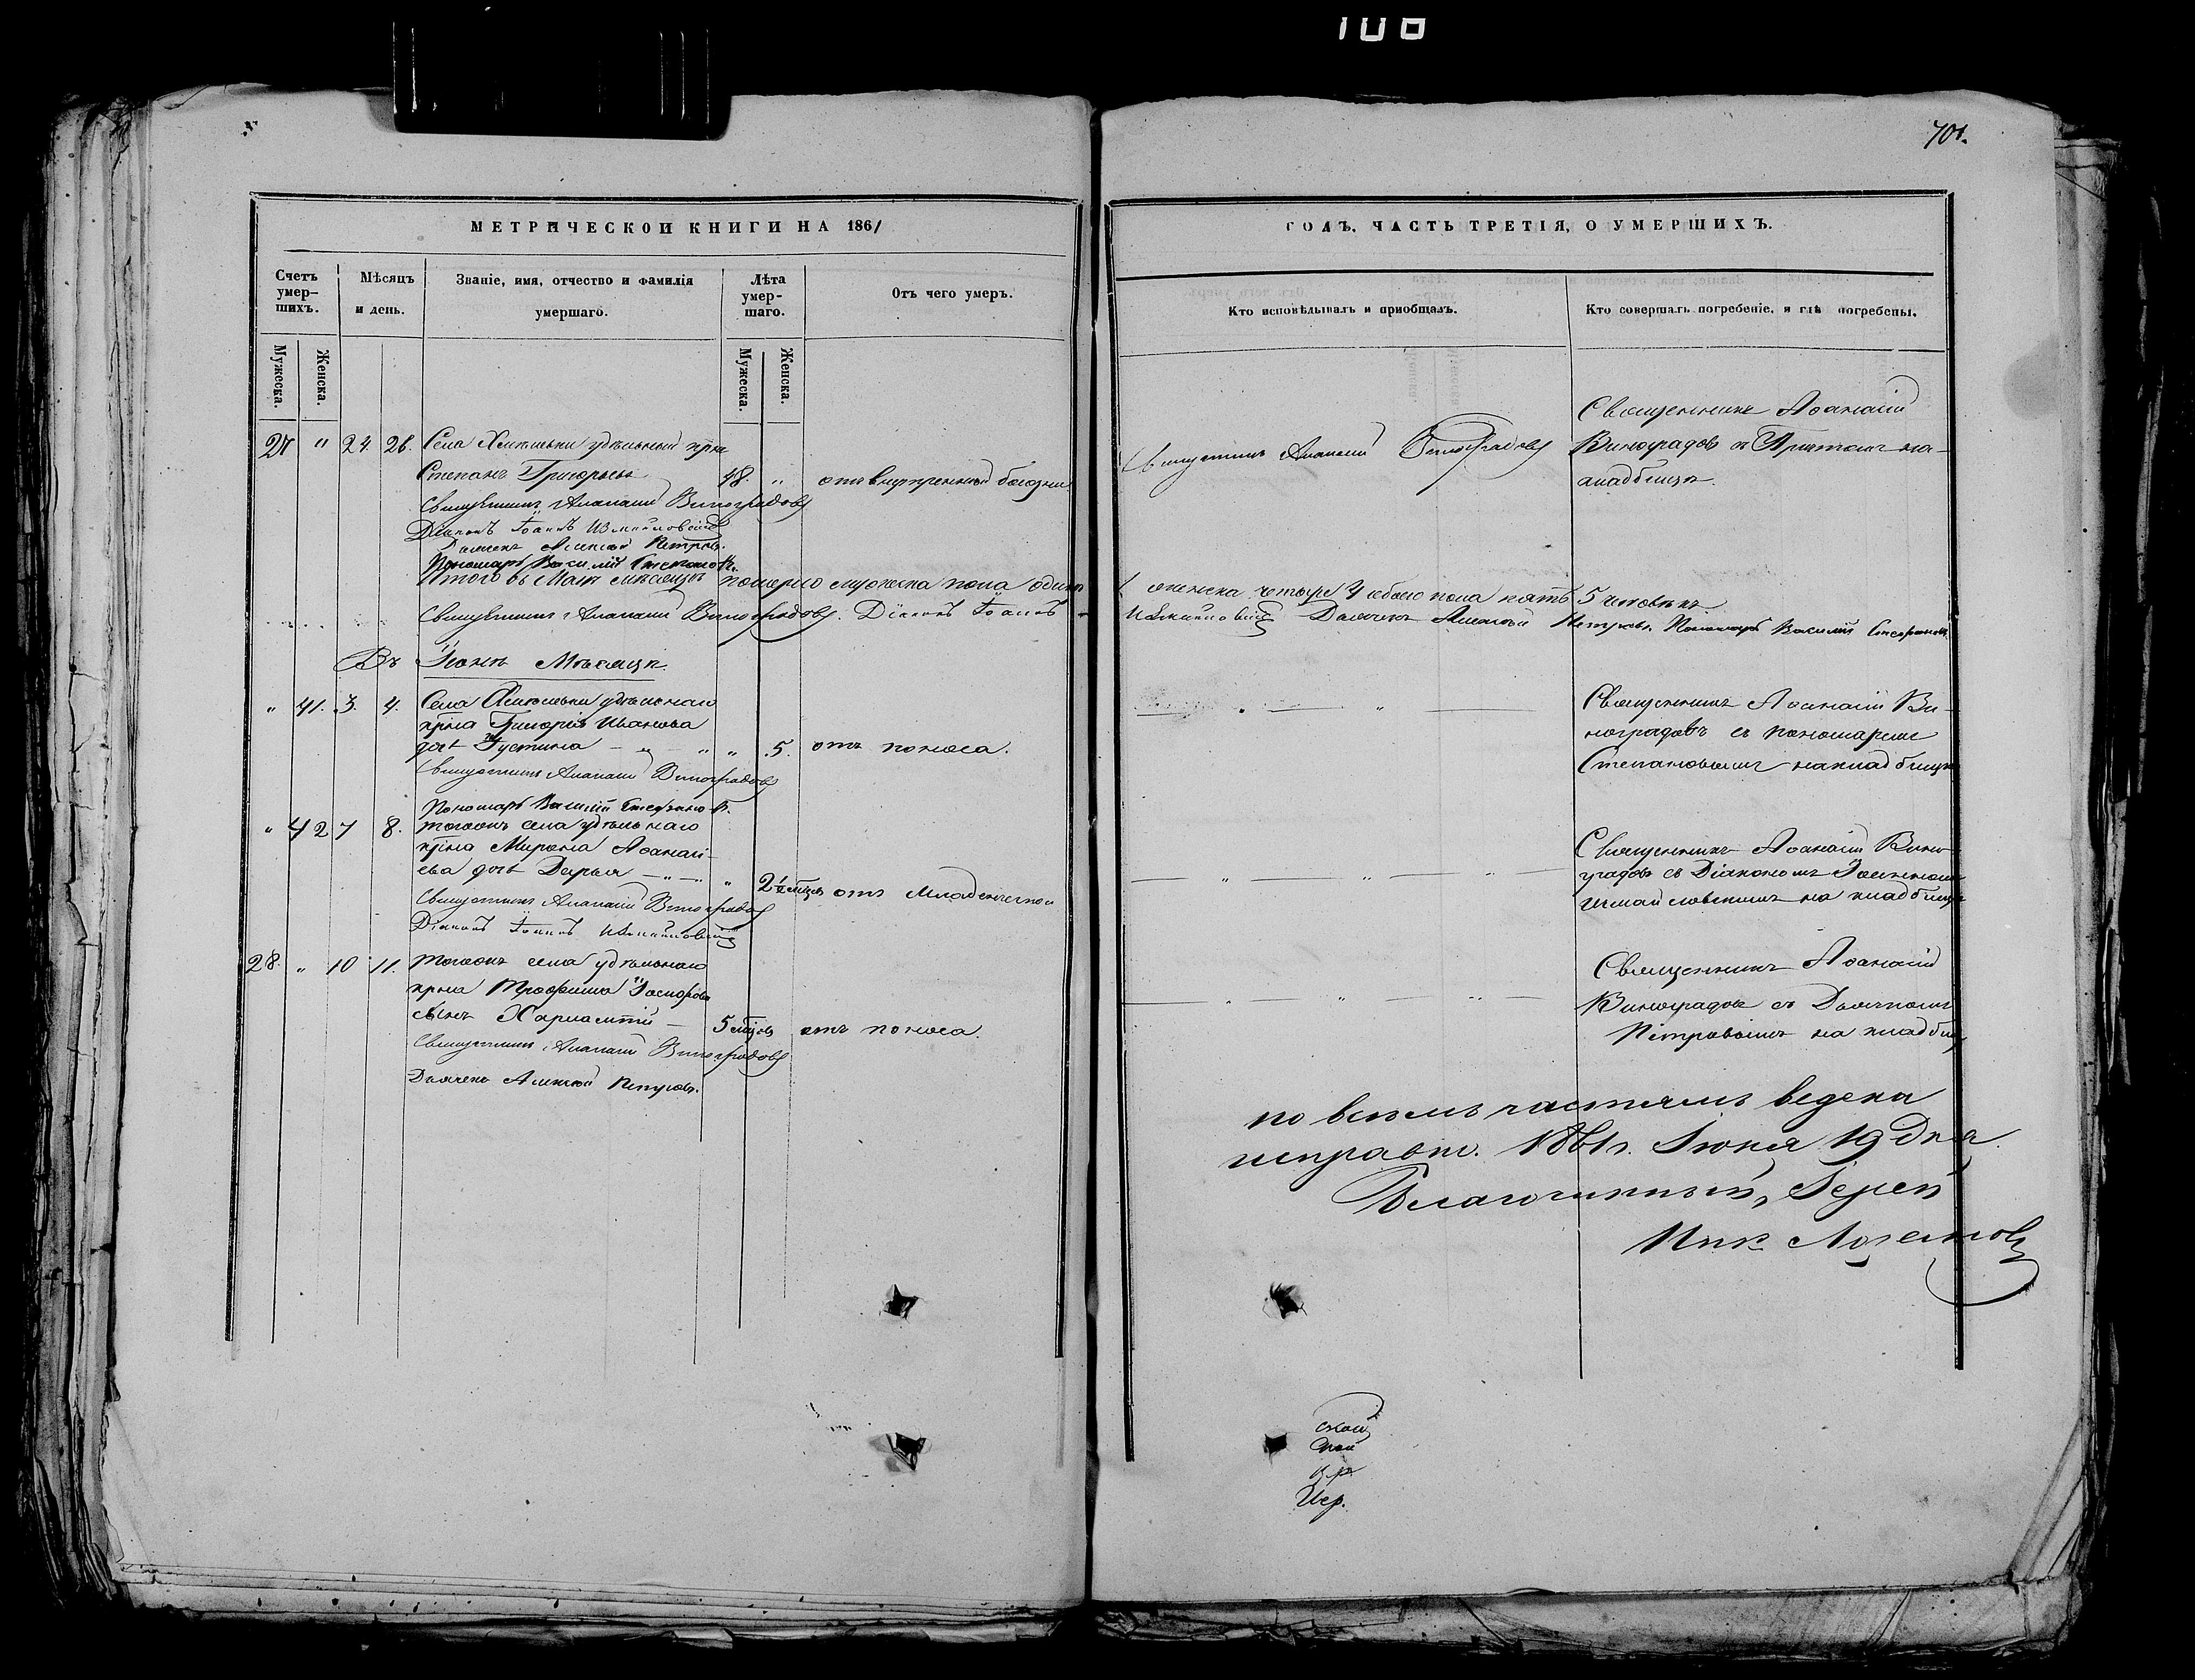 108
701.
МЕТРИЧЕСКОЙ КНИГИ НА 1861
ГОДЪ, ЧАСТЬ ТРЕТІЯ, О УМЕРШИХЪ.
Счетъ умер-
шихъ.
Мѣсяцъ
и день.
Званіе, имя, отчество и фамилія
умершаго.
Лѣта
умер-
шаго.
Отъ чего умеръ.
Кто исповѣдывалъ и пріобщалъ.
Кто совершалъ погребеніе, и гдѣ погребены.
Мужеска.
Женска.
Мужеска.
Женска.
27 " 24. 26. Села удѣльный крнъ
Степанъ Григорьевъ 48. " отъ внутренней болезни
Священникъ Аѳанасій Виноградовъ
Діаконъ Іоаннъ Измайловскій
Дьячекъ Алексѣй Петровъ.
Пономарь Василій Степановъ.
Священникъ Аѳанасій Виноградовъ
Священникъ Аѳанасій
Виноградовъ съ Причтомъ на
кладбищѣ.
Итого въ Маѣ мѣсяцѣ померло мужеска пола одинъ
1 женска четыре 4 обоего пола пять 5 человѣкъ
Священникъ Аѳанасій Виноградовъ. Діаконъ Іоаннъ
Измайловскій Дьячекъ Алексѣй Петровъ. Пономарь Василій Степановъ
Въ Іюнѣ Мѣсяцѣ.
" 41. 3. 4. Села удѣльнаго
крнна Григорія Иванова
дочь Іустина " " 5. отъ поноса.
Священникъ Аѳанасій Виноградовъ
Пономарь Василій Степановъ.
Священникъ Аѳанасій Ви-
ноградовъ съ пономаремъ
Степановымъ на кладбищѣ
" 42 7 8. тогожъ села удѣльнаго
крнна Мирона Аѳанась-
ева дочь Дарья " 2½ мцовъ отъ младенческой
Священникъ Аѳанасій Виноградовъ
Діаконъ Іоаннъ Измайловскій
Священникъ Аѳанасій Вино-
градовъ съ Діакономъ Іоанномъ
Измайловскимъ на кладбищѣ
28. " 10 11. тогожъ села удѣльнаго
крнна Трофима
сынъ Харлампій 5 мцовъ отъ поноса.
Священникъ Аѳанасій Виноградовъ
Дьячекъ Алексѣй Петровъ.
Священникъ Аѳанасій
Виноградовъ съ Дьячкомъ
Петровымъ на кладбищѣ
по всѣмъ частямъ ведена
исправно. 1861г. Іюня 19 дня.
Благочинный, Іерей
Ник.
ской
ной
Иер.